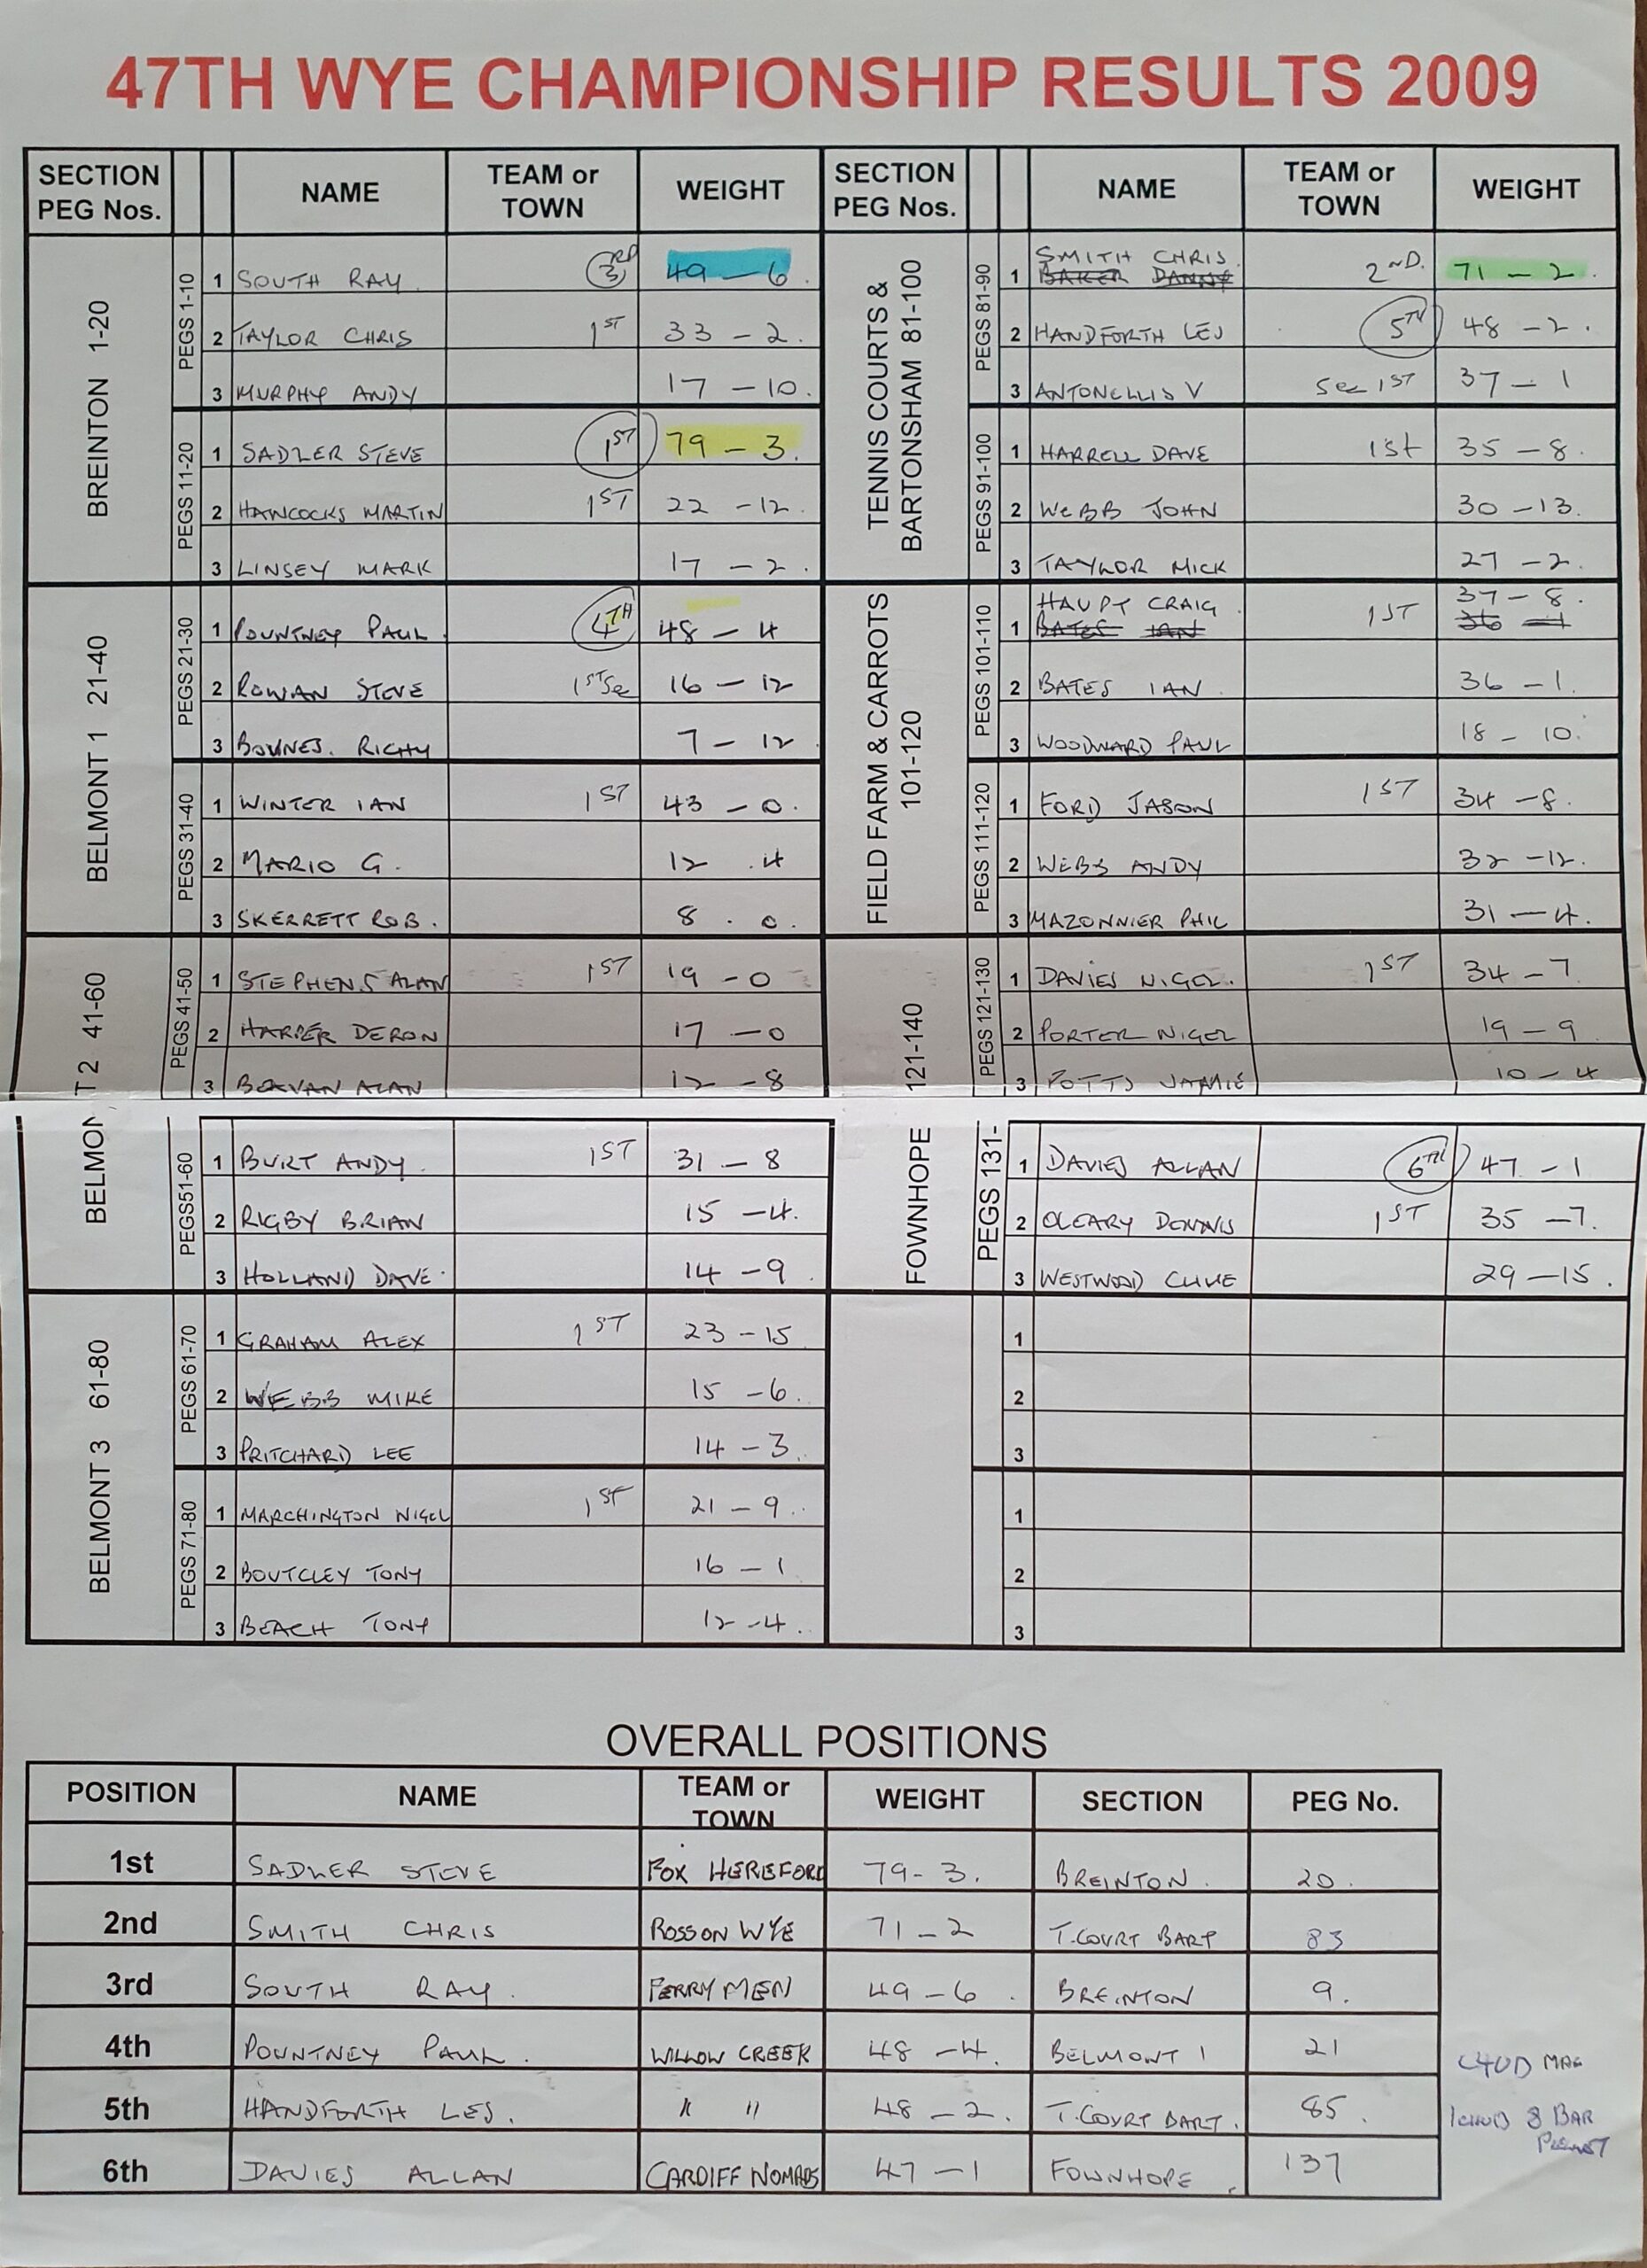 47TH WYE CHAMPIONSHIP RESULTS 2009
SECTION PEG Nos. NAME TEAM or TOWN WEIGHT
BREINTON 1-20
PEGS 1-10
1 SOUTH RAY 3RD 49 - 6
2 TAYLOR CHRIS 1ST 33 - 2
3 MURPHY ANDY 17 - 10
PEGS 11-20
1 SADLER STEVE 1ST 79 - 3
2 HANCOCKS MARTIN 1ST 22 - 12
3 LINSEY MARK 17 - 2
BELMONT 1 21-40
PEGS 21-30
1 POUNTNEY PAUL 4TH 48 - 4
2 ROWAN STEVE 1ST Sec 16 - 12
3 BOWNES. RICHY 7 - 12
PEGS 31-40
1 WINTER IAN 1ST 43 - 0
2 MARIO G. 12 . 4
3 SKERRETT ROB. 8 . 0
BELMONT 2 41-60
PEGS 41-50
1 STEPHENS ALAN 1ST 19 - 0
2 HARPER DERON 17 - 0
3 BEAVAN ALAN 12 - 8
PEGS51-60
1 BURT ANDY 1ST 31 - 8
2 RIGBY BRIAN 15 - 4
3 HOLLAND DAVE 14 - 9
BELMONT 3 61-80
PEGS 61-70
1 GRAHAM ALEX 1ST 23 - 15
2 WEBB MIKE 15 - 6
3 PRITCHARD LEE 14 - 3
PEGS 71-80
1 MARCHINGTON NIGEL 1ST 21 - 9
2 BOUTCLEY TONY 16 - 1
3 BEACH TONY 12 - 4
SECTION PEG Nos. NAME TEAM or TOWN WEIGHT
TENNIS COURTS & BARTONSHAM 81-100
PEGS 81-90
SMITH CHRIS
1 BAKER DANNY 2ND. 71 - 2
2 HANDFORTH LES 5TH 48 - 2
3 ANTONELLIS V Sec 1ST 37 - 1
PEGS 91-100
1 HARRELL DAVE 1st 35 - 8
2 WEBB JOHN 30 - 13
3 TAYLOR MICK 27 - 2
FIELD FARM & CARROTS 101-120
PEGS 101-110
HAUPT CRAIG 1ST 37 - 8
1 BATES IAN 36 - 1
2 BATES IAN 36 - 1
3 WOODWARD PAUL 18 - 10
PEGS 111-120
1 FORD JASON 1ST 34 - 8
2 WEBB ANDY 32 - 12
3 MAZONNIER PHIL 31 - 4
FOWNHOPE 121-140
PEGS 121-130
1 DAVIES NIGEL 1ST 34 - 7
2 PORTER NIGEL 19 - 9
3 POTTS JAMIE 10 - 4
PEGS 131-
1 DAVIES ALLAN 6TH 47 - 1
2 OLEARY DENNIS 1ST 35 - 7
3 WESTWOOD CLIVE 29 - 15
1
2
3
1
2
3
OVERALL POSITIONS
POSITION NAME TEAM or TOWN WEIGHT SECTION PEG No.
1st SADLER STEVE FOX HEREFORD 79 - 3. BREINTON. 20.
2nd SMITH CHRIS ROSS ON WYE 71 - 2 T.COURT BART 83
3rd SOUTH RAY. FERRYMEN 49 - 6 BREINTON 9.
4th POUNTNEY PAUL. WILLOW CREEK 48 - 4. BELMONT 1 21
5th HANDFORTH LES. " " 48 - 2. T.COURT BART. 85.
6th DAVIES ALLAN CARDIFF NOMADS 47 - 1 FOWNHOPE. 137
MAG
8 BAR